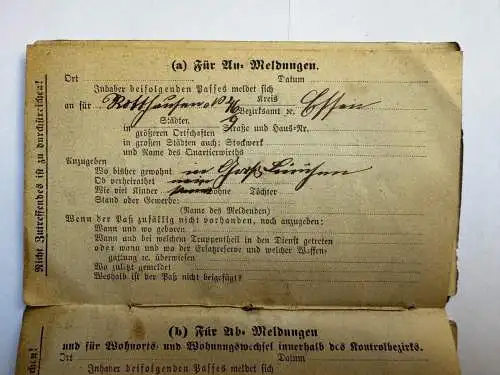 (a) Für An- Meldungen.
Ort Datum
Inhaber beifolgenden Passes meldet sich
an für Rotthausen Kreis Essen
Bezirksamt ec.
Städten
in größeren Ortschaften Straße und Haus-Nr.
in großen Städten auch: Stockwerk
und Name des Quartierwirths
Anzugeben
Wo bisher gewohnt in
Ob verheirathet nein
Wie viel Kinder Söhne Töchter
Stand oder Gewerbe:
(Name des Meldenden)
Wenn der Paß zufällig nicht vorhanden, noch anzugeben:
Wann und wo geboren
Wann und bei welchem Truppentheil in den Dienst getreten
oder wann und wo der Ersatzreserve und welcher Waffen-
gattung ec. überwiesen
Wo zuletzt gemeldet
Weshalb ist der Paß nicht beigefügt?
Nicht Zutreffendes ist zu durchstreichen!
(b) Für Ab- Meldungen
und für Wohnorts- und Wohnungswechsel innerhalb des Kontrolbezirks.
Ort Datum
Inhaber beifolgenden Passes meldet sich